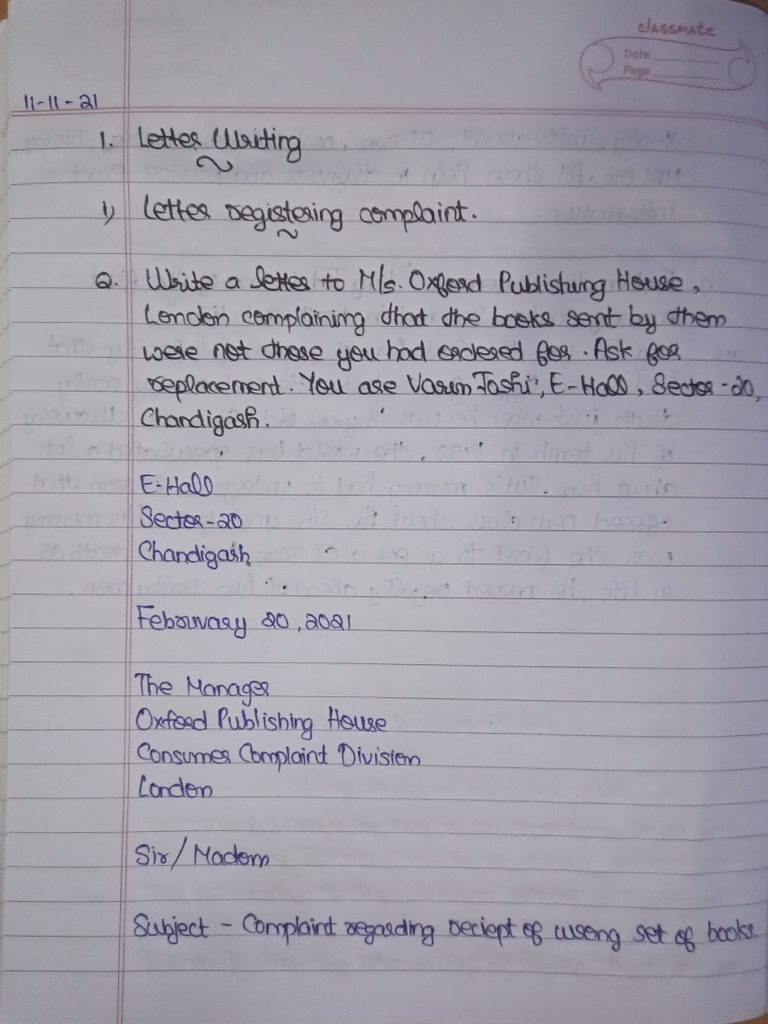 classmate
Date
Page
11-11-21
1. Letter Writing
1) Letter registering complaint.
Q. Write a letter to M/s. Oxford Publishing House,
London complaining that the books sent by them
were not those you had ordered for. Ask for
replacement. You are Varun Joshi, E-Hall, Sector-20,
Chandigarh.
E-Hall
Sector-20
Chandigarh
February 20, 2021
The Manager
Oxford Publishing House
Consumer Complaint Division
London
Sir/Madam
Subject - Complaint regarding reciept of wrong set of books.